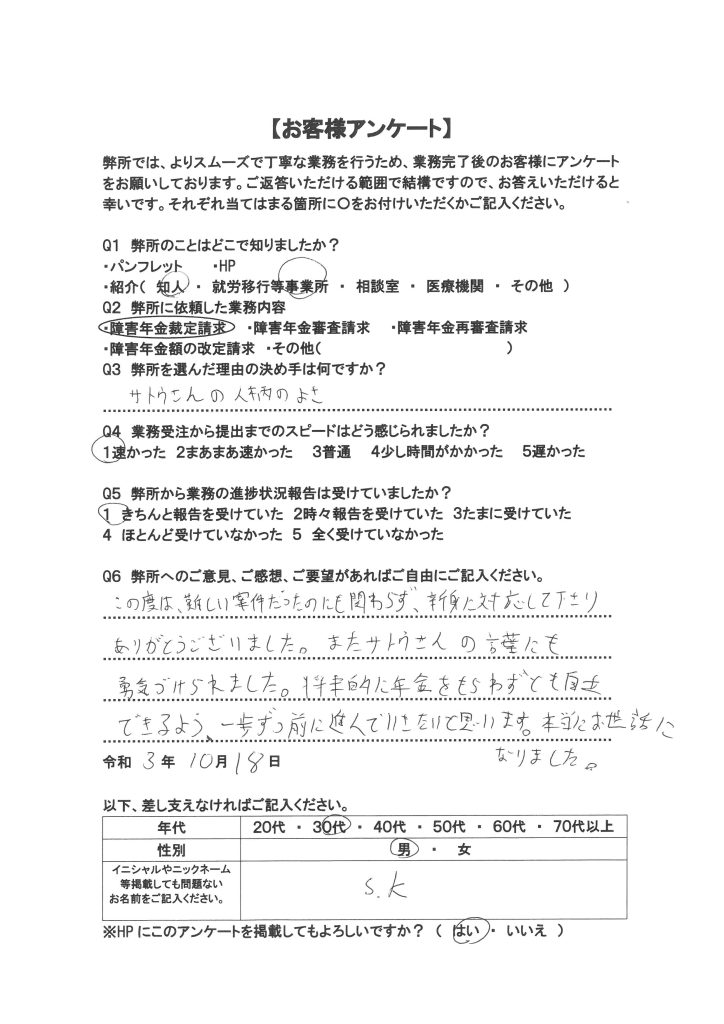 【お客様アンケート】
弊所では、よりスムーズで丁寧な業務を行うため、業務完了後のお客様にアンケート
をお願いしております。ご返答いただける範囲で結構ですので、お答えいただけると
幸いです。それぞれ当てはまる箇所に〇をお付けいただくかご記入ください。
Q1 弊所のことはどこで知りましたか？
・パンフレット ・HP
・紹介（ 知人 ・ 就労移行等事業所 ・ 相談室 ・ 医療機関 ・ その他 ）
Q2 弊所に依頼した業務内容
・障害年金裁定請求 ・障害年金審査請求 ・障害年金再審査請求
・障害年金額の改定請求 ・その他（ ）
Q3 弊所を選んだ理由の決め手は何ですか？
サトウさんの人柄のよさ
Q4 業務受注から提出までのスピードはどう感じられましたか？
1速かった 2まあまあ速かった 3普通 4少し時間がかかった 5遅かった
Q5 弊所から業務の進捗状況報告は受けていましたか？
1 きちんと報告を受けていた 2時々報告を受けていた 3たまに受けていた
4 ほとんど受けていなかった 5 全く受けていなかった
Q6 弊所へのご意見、ご感想、ご要望があればご自由にご記入ください。
この度は、難しい案件だったのにも関わらず、親身に対応して下さり
ありがとうございました。またサトウさんの言葉にも
勇気づけられました。将来的に年金をもらわずとも自立
できるよう、一歩ずつ前に進んでいきたいと思います。本当にお世話に
なりました。
令和 3 年 10月18日
以下、差し支えなければご記入ください。
年代 20代 ・ 30代 ・ 40代 ・ 50代 ・ 60代 ・ 70代以上
性別 男 ・ 女
イニシャルやニックネーム
等掲載しても問題ない
お名前をご記入ください。
S.K
※HPにこのアンケートを掲載してもよろしいですか？（ はい ・ いいえ ）